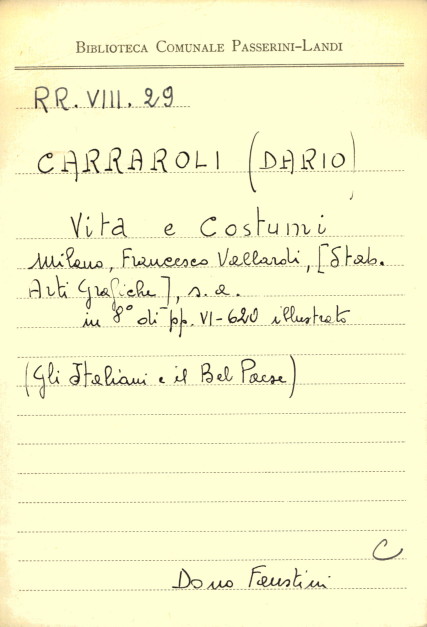 BIBLIOTECA COMUNALE PASSERINI-LANDI
RR. VIII. 29
CARRAROLI (DARIO)
Vita e Costumi
Milano, Francesco Vallardi, [Stab.
Arti Grafiche], s. a.
in 8° di pp. VI-620 illustrato
(Gli Italiani e il Bel Paese)
C
Dono Faustini